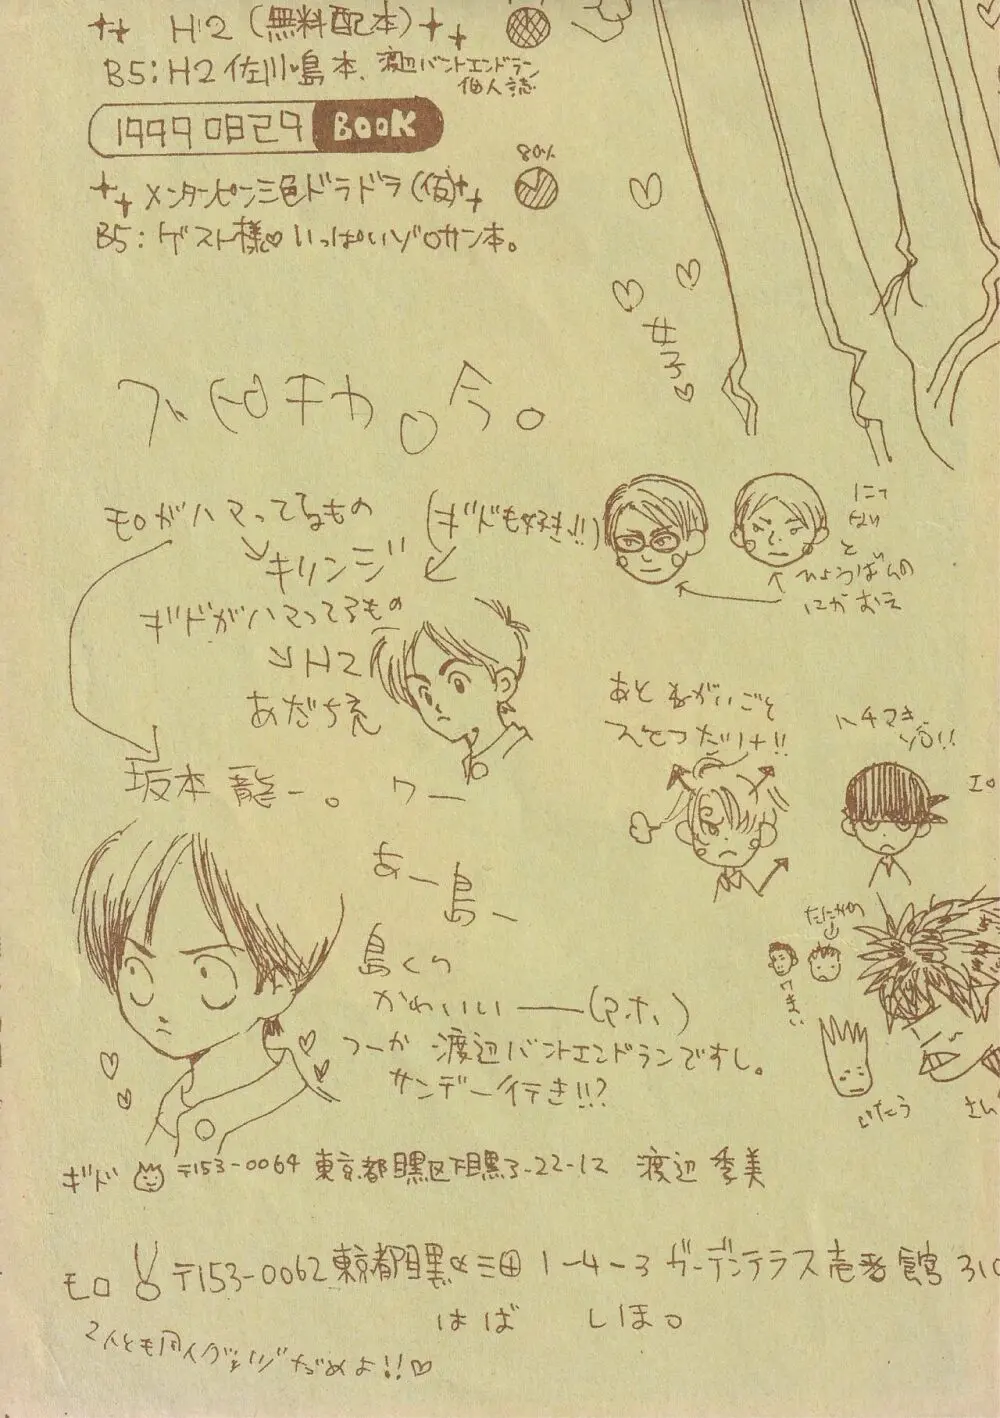 H2(無料配本)
B5:H2佐川・島本、渡辺バントエンドラン
個人誌
19990829 BOOK
80%
メンタンピン三色ドラドラ(仮)
B5:ゲスト様♡いっぱいゾロサン本。
女子♡
今。
モロがハマってるもの
(ギドも好き!!)
キリンジ
ギドがハマってるもの
H2
あだち充
坂本龍一。
ワー
にてない
と
ひょうばんの
にがおえ
あと ねがいごと
ひとつだけ!!
ハチマキ
ゾロ!!
エロ
あー島ー
島くり
かわいいー(アホ)
つーか 渡辺バントエンドランですし。
サンデー行き!!?
たにがわ
いたろう
ギド 〒153-0064 東京都目黒区下目黒3-22-12 渡辺 季美
モロ 〒153-0062 東京都目黒区三田1-4-3 ガーデンテラス壱番館310
はば しほ。
2人とも同人グッズだめよ!!♡